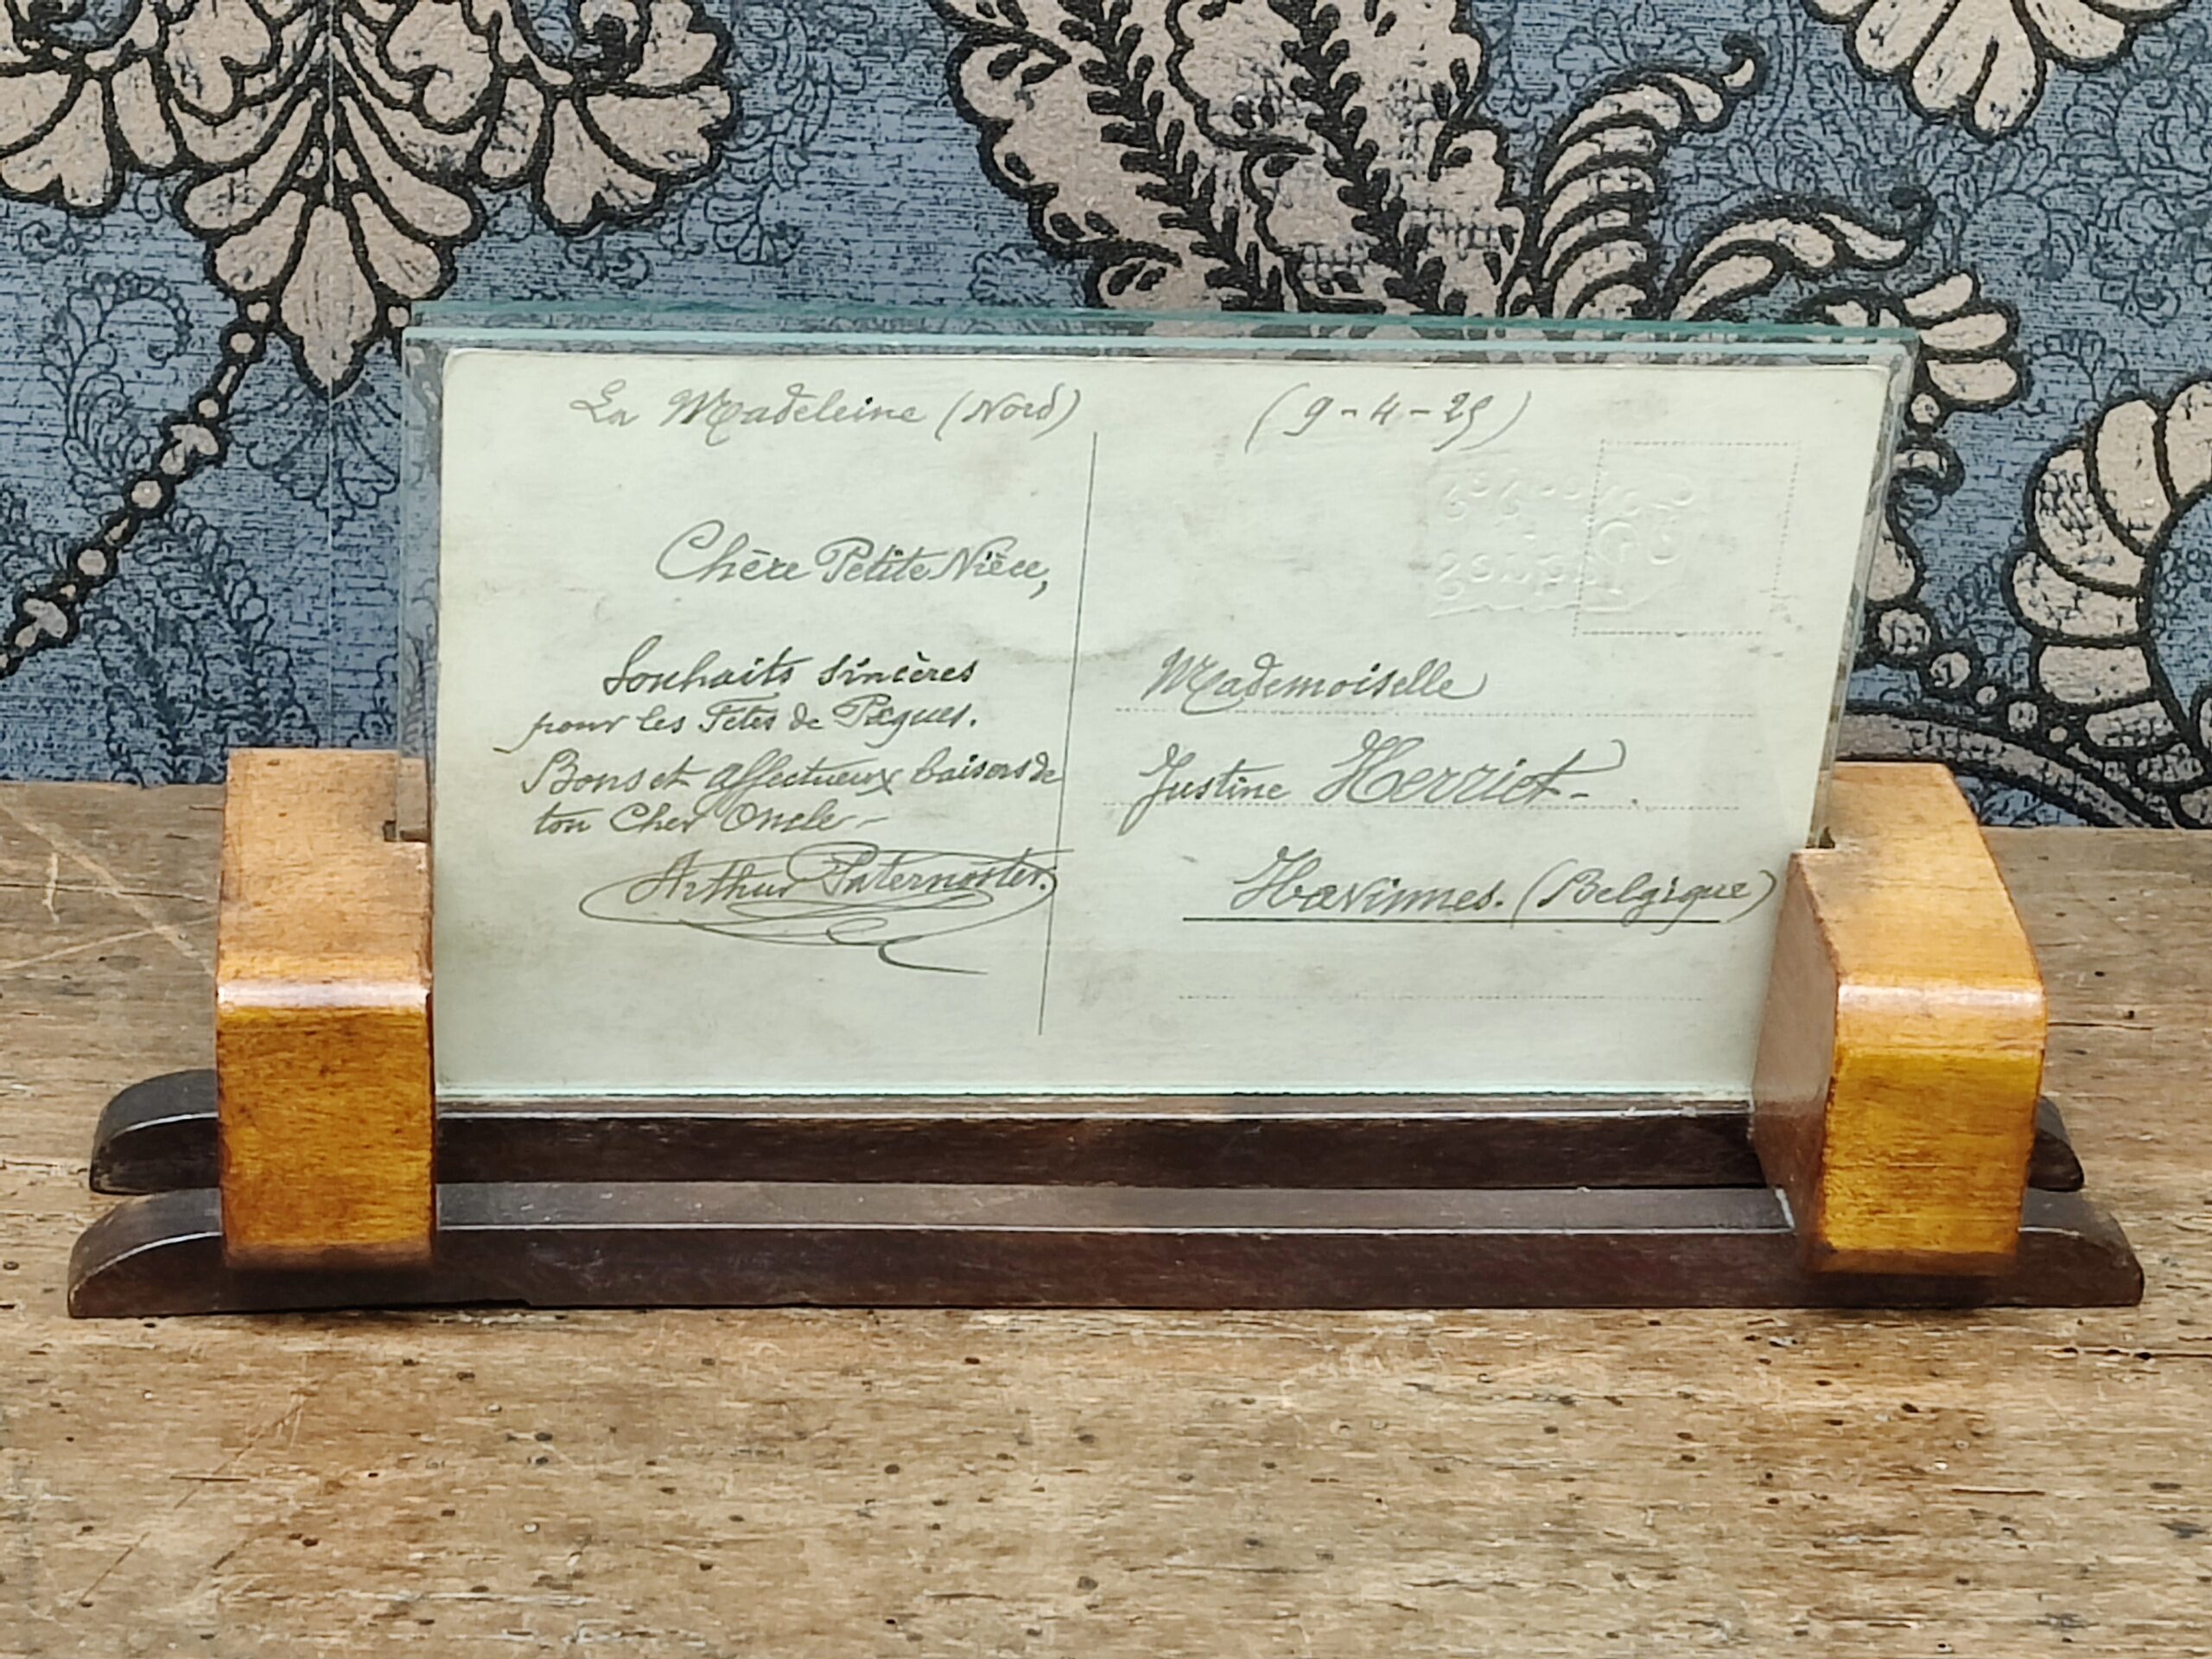 La Madeleine (Nord)
(9-4-25)
Chère Petite Nièce,
Souhaits sincères
pour les Fêtes de Pâques.
Bons et affectueux baisers de
ton Cher Oncle -
Arthur Paternoster.
Mademoiselle
Justine Herriet -
Havinnes. (Belgique)